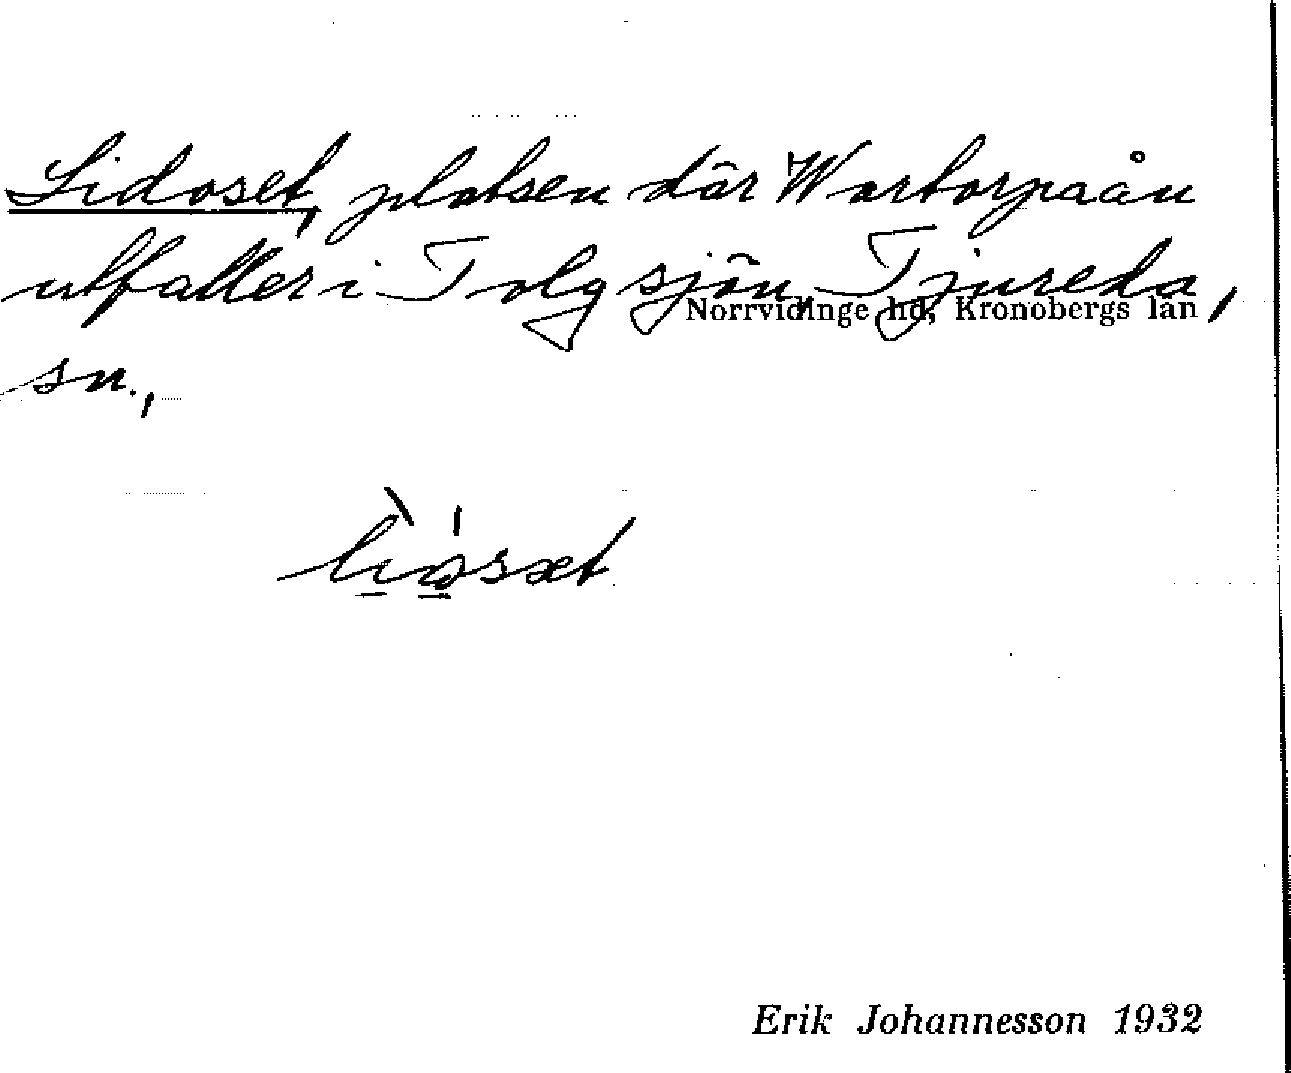 Lidoset, platsen där Wartorpaån
utfaller i Tolgsjön Tjureda,
Norrvidinge hd, Kronobergs län
sn.,
Erik Johannesson 1932